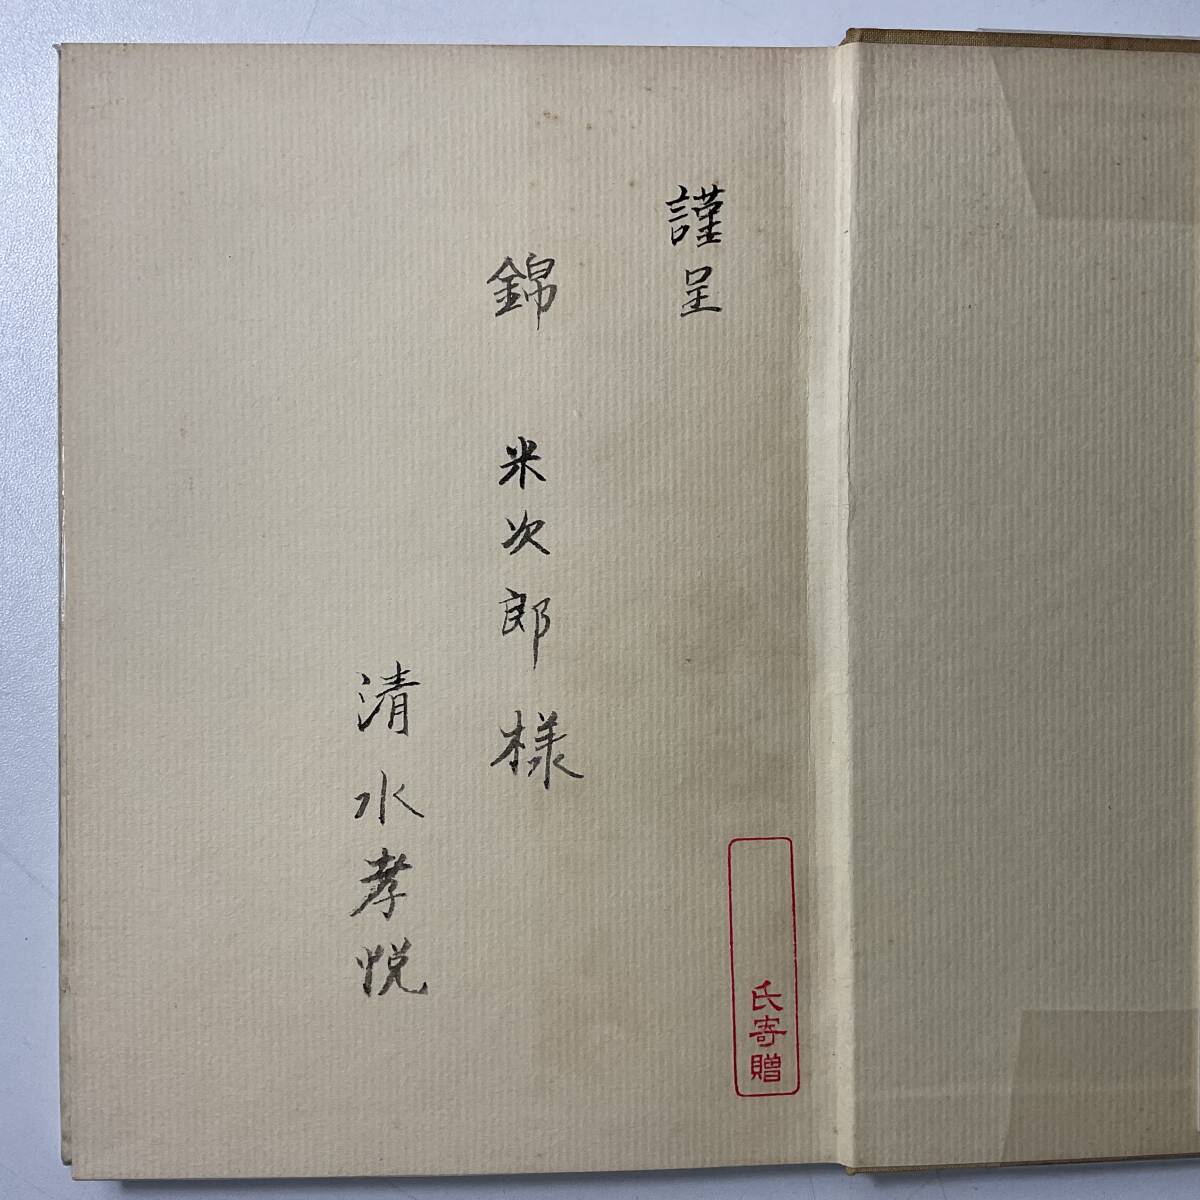 謹呈
錦 米次郎様
清水孝悦
氏寄贈